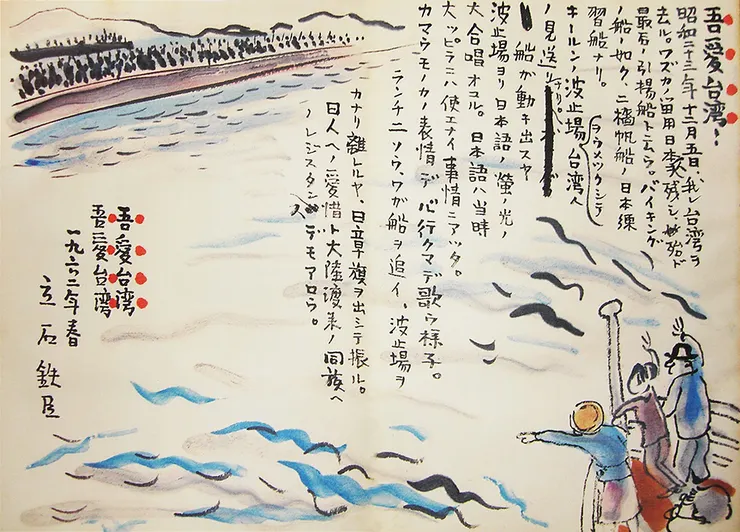 吾愛台湾!
昭和二十三年十二月五日、我レ台湾ヲ
去ル。ワズカノ留用日本人残シ、殆ド
最后ノ引揚船トニムウ。バイキング
ノ船ノ如ク、二檣帆船ノ日本練
習船ナリ。
キールンノ波止場ヲウメツクシテ台湾人
ノ見送リナリ。
船が動キ出スヤ
波止場ヨリ日本語ノ螢ノ光ノ
大合唱オコル。日本語ハ当時
大ッピラニハ使エナイ事情ニアッタ。
カマウモノカノ表情デ心行クマデ歌ウ様子。
ランチニソウ、ワガ船ヲ追イ、波止場ヲ
カナリ離レルヤ、日章旗ヲ出シテ振ル。
日人ヘノ愛惜ト大陸渡来ノ同族ヘ
ノレジスタンスデモアロウ。
吾愛台湾
吾愛台湾
一九六二年春
立石鉄臣